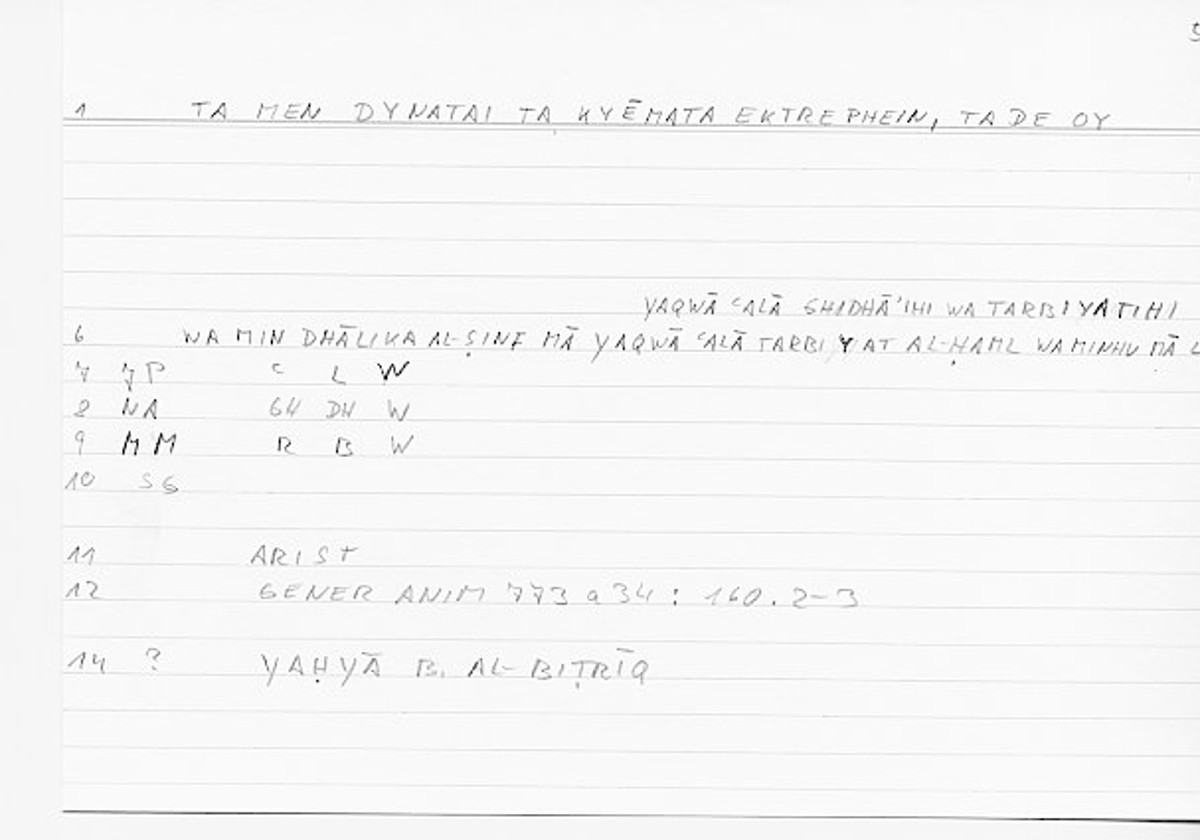 5
1 TA MEN DYNATAI TA KYĒMATA EKTREPHEIN, TA DE OY
YAQWĀ ʿALĀ GHIDHĀʾIHI WA TARBIYATIHI
6 WA MIN DHĀLIKA AL-ṢINF MĀ YAQWĀ ʿALĀ TARBIYAT AL-ḤAML WA MINHU MĀ L
7 JP ʿ L W
8 NA GH DH W
9 MM R B W
10 SG
11 ARIST
12 GENER ANIM 773 a 34 : 160.2-3
14 ? YAḤYĀ B. AL-BIṬRĪQ